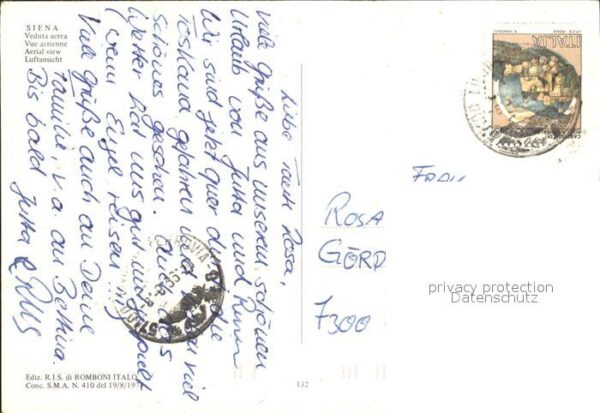 SIENA
Veduta aerea
Vue aerienne
Aerial view
Luftansicht
Liebe Tante Rosa,
viele Grüße aus unserem schönen
Urlaub von Jutta und
Wir sind jetzt quer durch die
Toskana gefahren und haben viel
schönes gesehen. Auch das
Wetter hat uns gut
Eure
Viele Grüße auch an Deine
Familie, v. a. an Bettina.
Bis bald Jutta &
ITALIA
Frau
ROSA
GÖRD
7300
privacy protection
Datenschutz
Ediz. R.I.S. di ROMBONI ITALO
Conc. S.M.A. N. 410 del 19/8/197
132